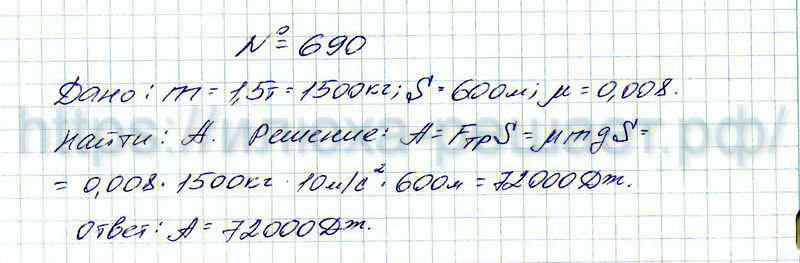 № 690
Дано: m = 1,5т = 1500кг; S = 600м; μ = 0,008.
Найти: A. Решение: A = FтрS = μmgS =
= 0,008 · 1500кг · 10м/с² · 600м = 72000Дж.
Ответ: A = 72000Дж.